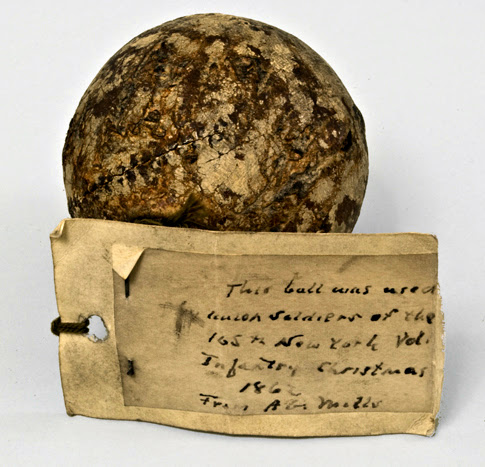 This ball was used
union soldiers of the
165th New York Vol.
Infantry Christmas
1862
From A G Mills